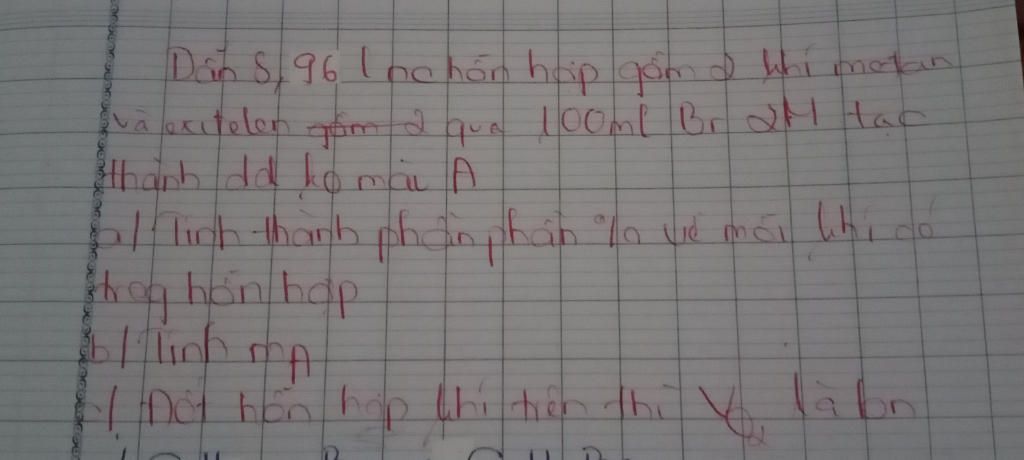 Dẫn 8,96 l hc hỗn hợp gồm 2 khí metan
và exitelen gồm 2 qua 100ml Br 2M tạc
thành dd kọ màu A
a/ Tính thành phần phần % về mỗi khí có
trog hỗn hợp
b/ Tính mA
-/ Đốt hỗn hợp khí trên thì VO2 là bn